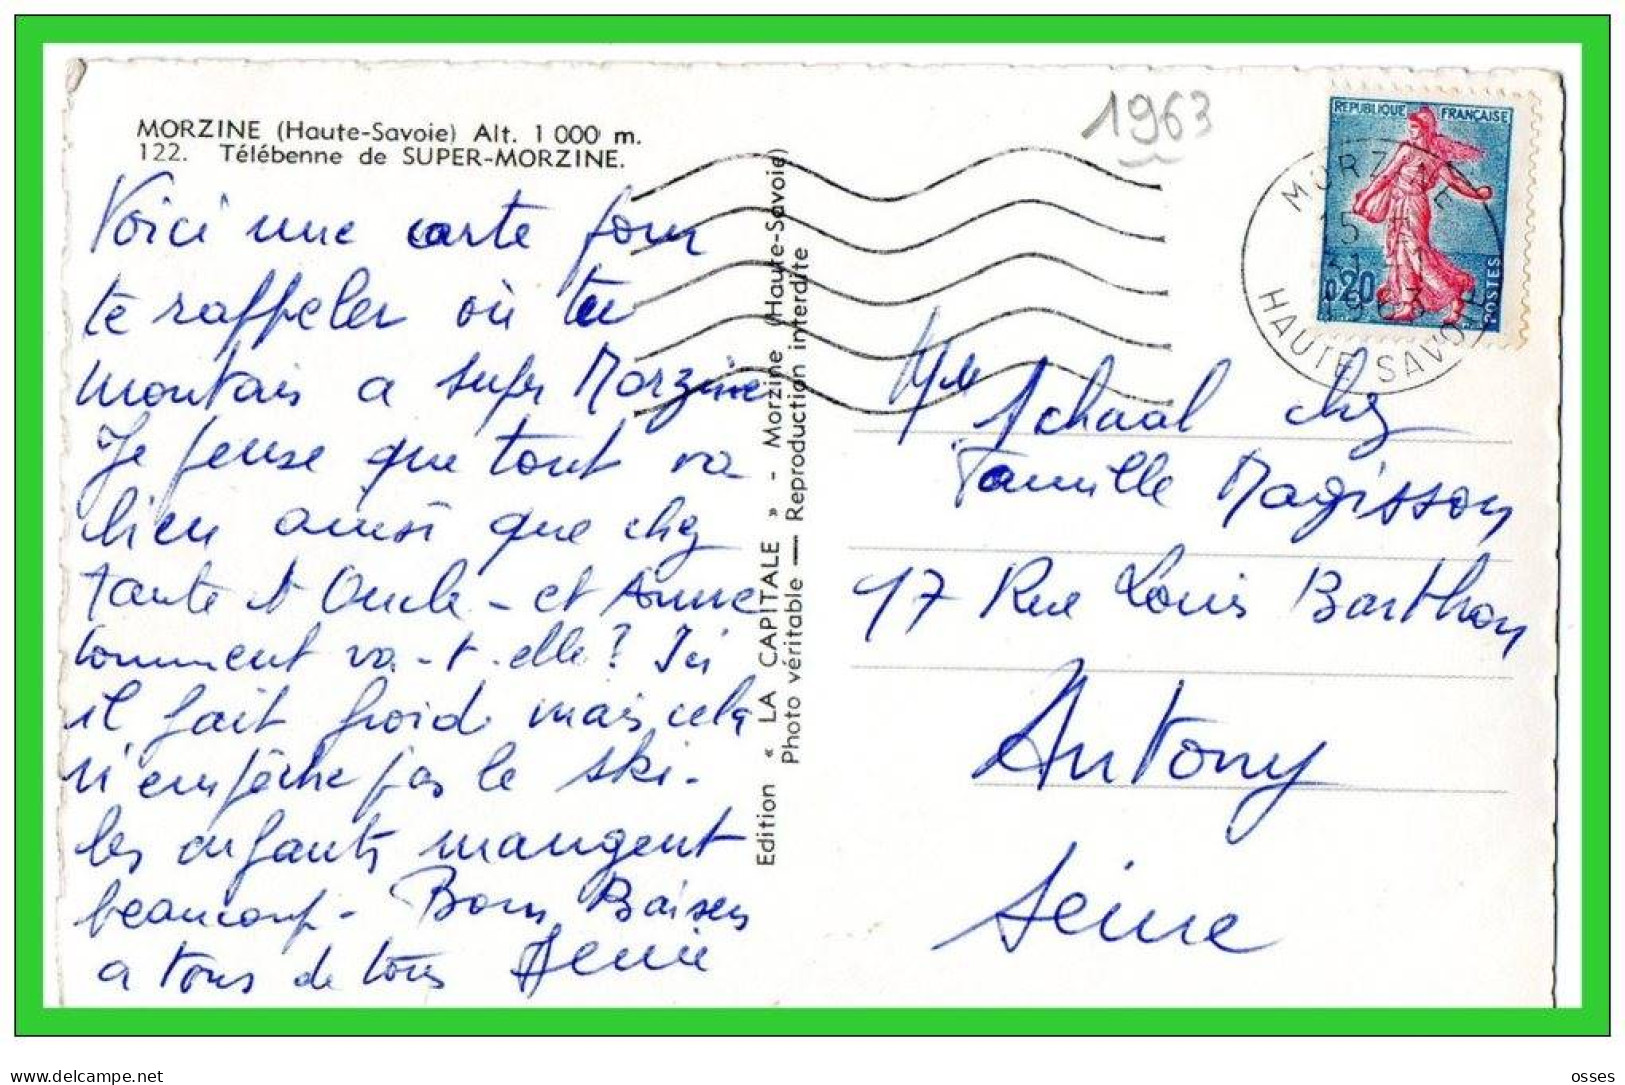 MORZINE (Haute-Savoie) Alt. 1 000 m.
122. Télébenne de SUPER-MORZINE.
Voici une carte pour
te rappeler où tu
montais a super Morzine
Je pense que tout va
bien ainsi que chez
tante et Oncle - et Anne
comment va-t-elle ? Ici
il fait froid mais cela
n'empêche pas le ski -
les enfants mangent
beaucoup - Bons Baisers
a tous de tous
Edition « LA CAPITALE » - Morzine (Haute-Savoie)
Photo véritable — Reproduction interdite
1963
REPUBLIQUE FRANÇAISE
0,20
POSTES
MORZINE
15 H
1963
HAUTE SAVOIE
Mlle Schaal chez
Famille Magisson
17 Rue Louis Barthou
Antony
Seine
www.delcampe.net
osses